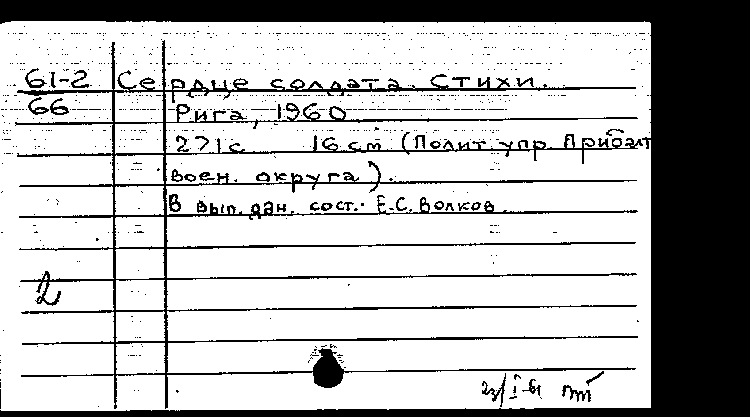 61-2 Сердце солдата. Стихи.
66 Рига, 1960
271с 16 см (Полит. упр. Прибалт
воен. округа).
В вып. дан. сост.: Е.С. Волков.
2
23/I-61